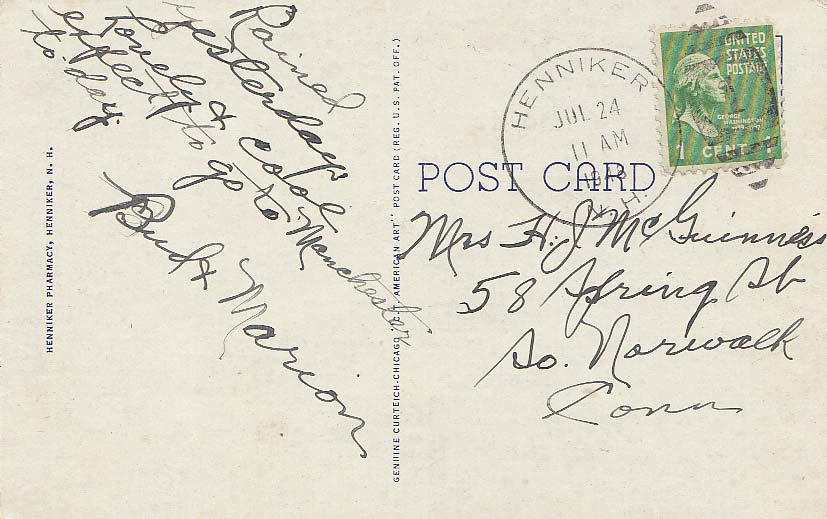 Rained
yesterday
Lovely & cool
expect to go to Manchester
today
Bud & Marion
HENNIKER PHARMACY, HENNIKER, N. H.
GENUINE CURTEICH-CHICAGO "C.T. AMERICAN ART" POST CARD (REG. U. S. PAT. OFF.)
HENNIKER
JUL 24
11 AM
N.H.
UNITED
STATES
POSTAGE
GEORGE
WASHINGTON
1 CENT 1
POST CARD
Mrs H. J. McGuinness
58 Spring St
So. Norwalk
Conn